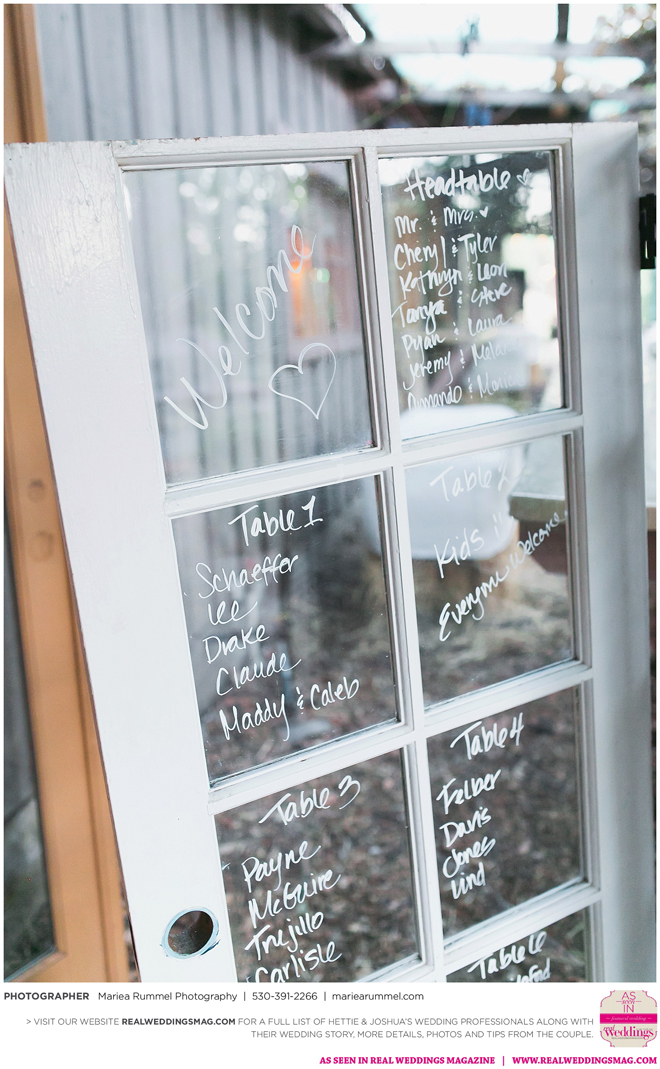 Welcome
Headtable
Mr. & Mrs.
Cheryl & Tyler
Kathryn & Leon
Tanya & Steve
Ryan & Laura
Jeremy &
Armando &
Table 1
Schaeffer
Lee
Drake
Claude
Maddy & Caleb
Table 2
Kids
Everyone Welcome
Table 3
Payne
McGuire
Trujillo
Carlisle
Table 4
Felber
Davis
Jones
Lind
Table 6
PHOTOGRAPHER Mariea Rummel Photography | 530-391-2266 | mariearummel.com
> VISIT OUR WEBSITE REALWEDDINGSMAG.COM FOR A FULL LIST OF HETTIE & JOSHUA'S WEDDING PROFESSIONALS ALONG WITH
THEIR WEDDING STORY, MORE DETAILS, PHOTOS AND TIPS FROM THE COUPLE.
AS
SEEN IN
real
Weddings
AS SEEN IN REAL WEDDINGS MAGAZINE | WWW.REALWEDDINGSMAG.COM